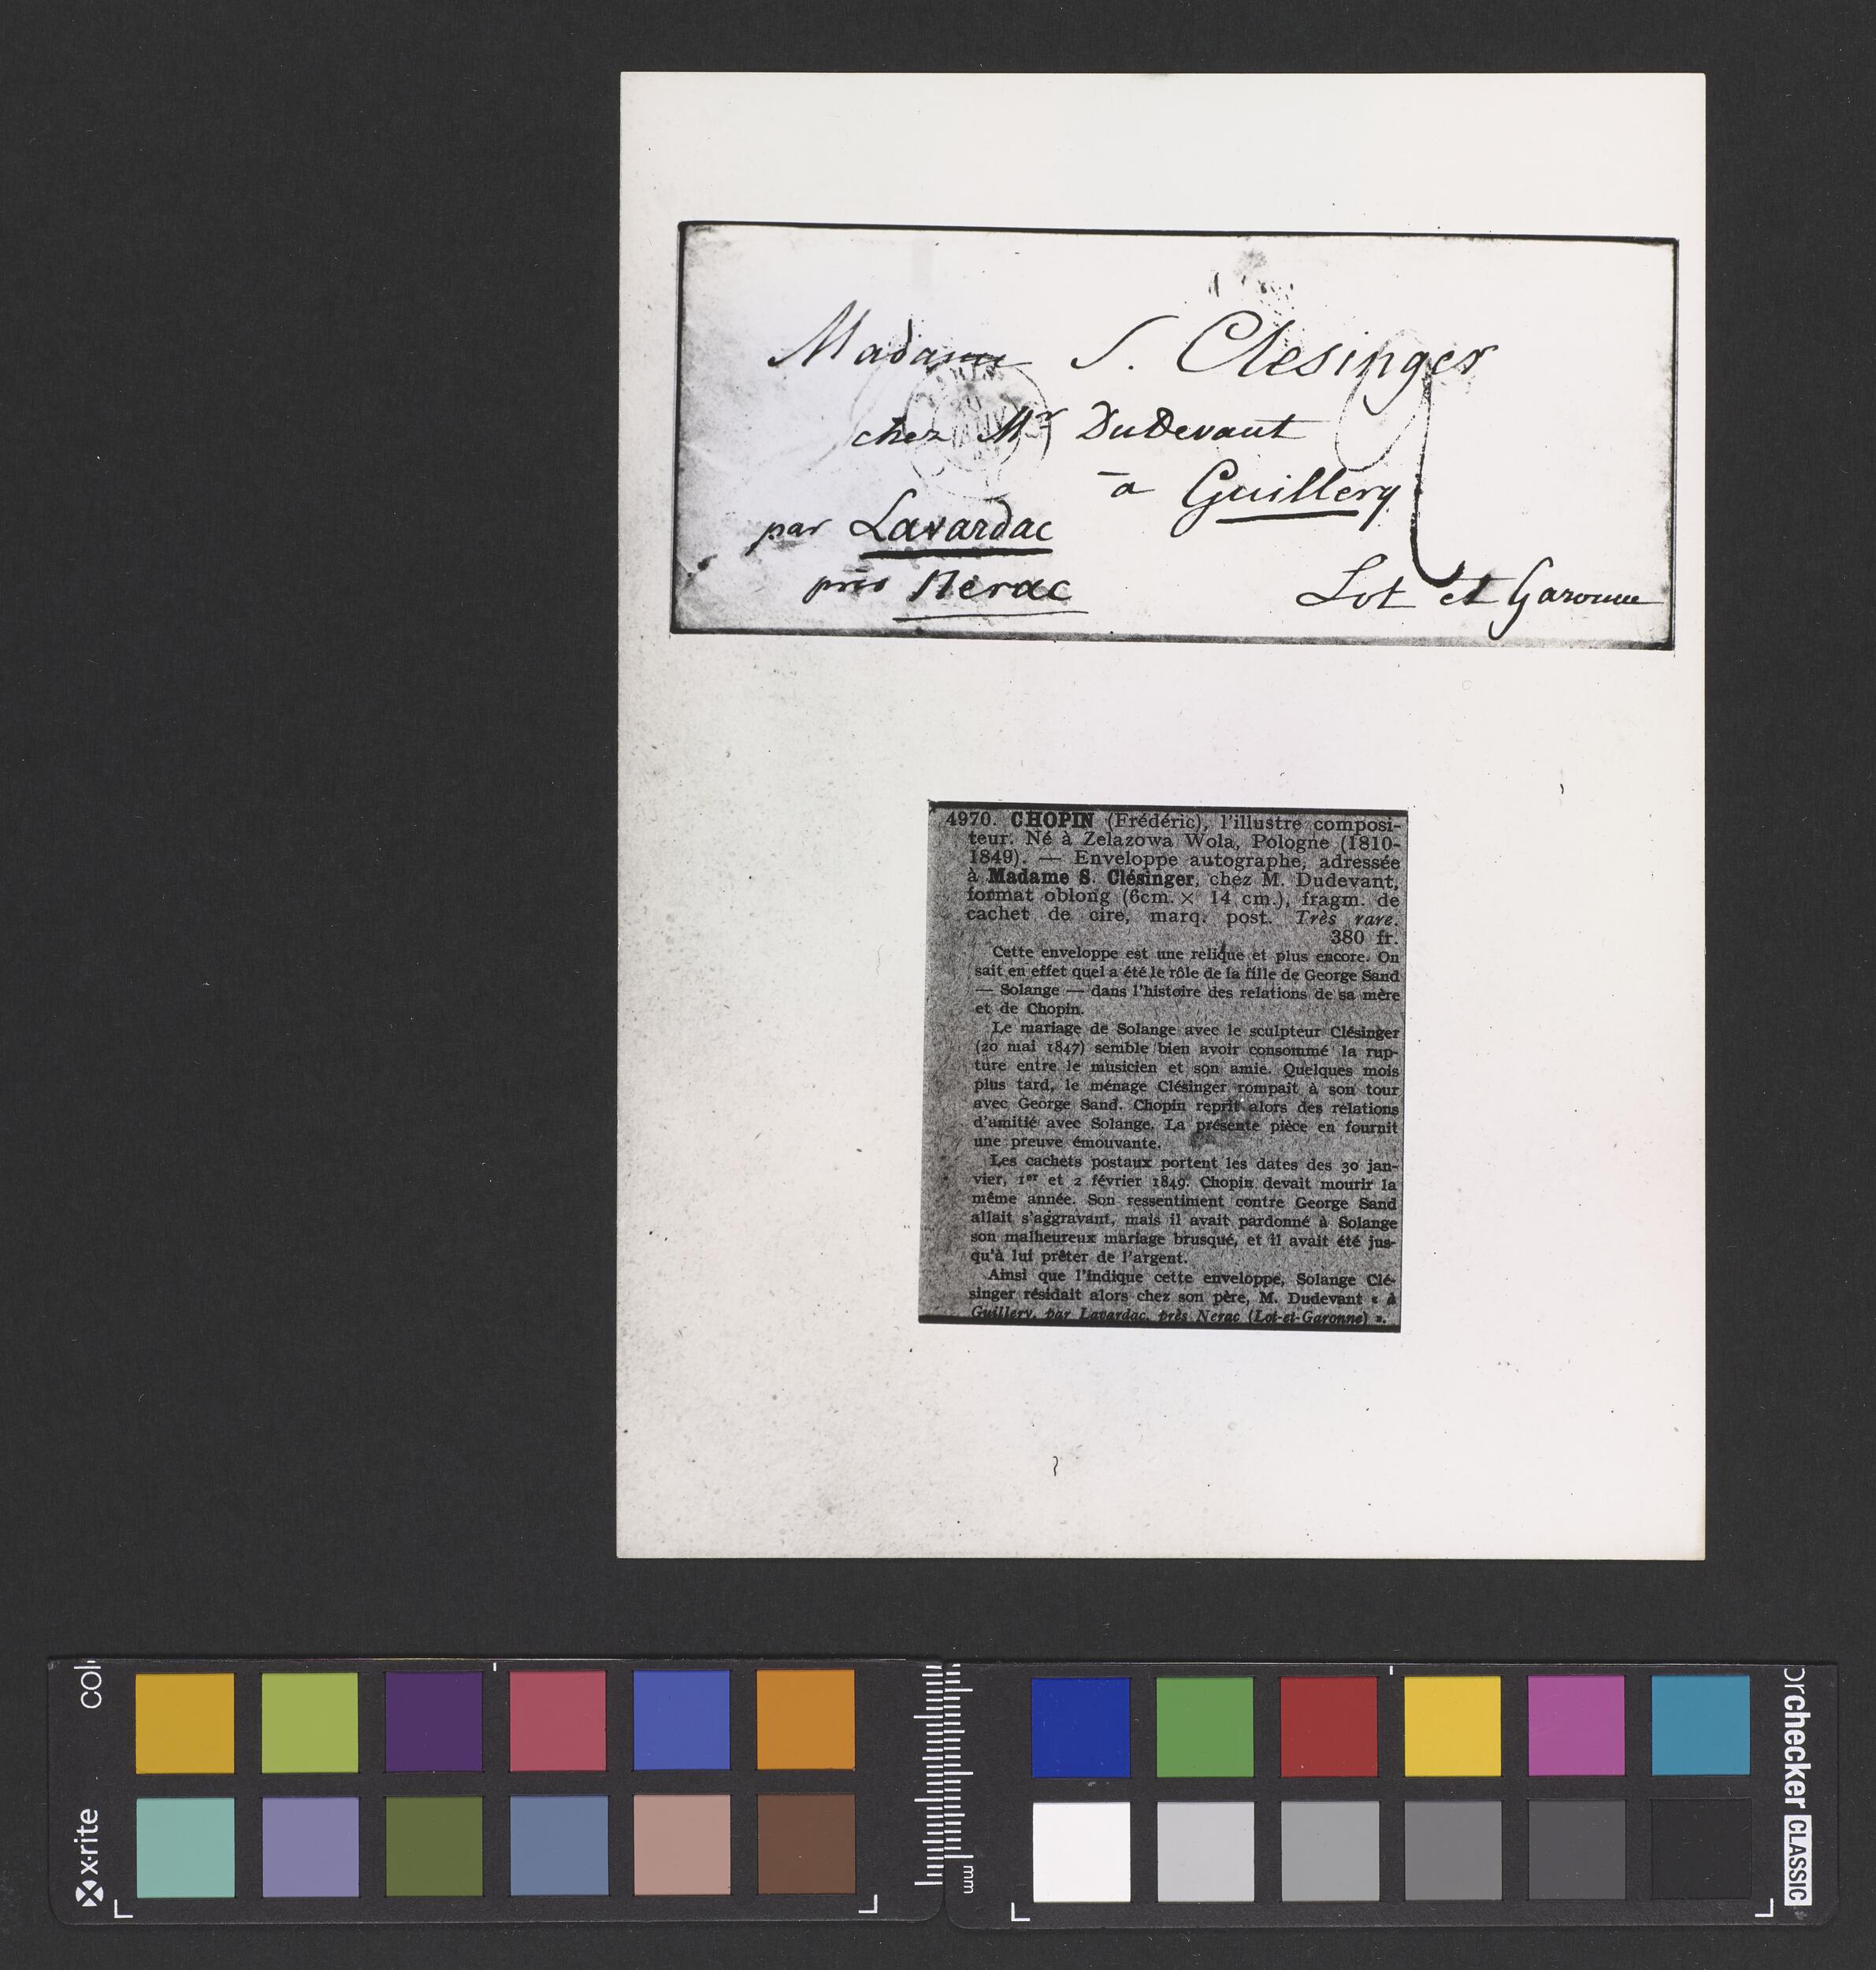 Madame S. Clesinger
chez Mr DuDevant
à Guillery
par Lavardac
près Nerac
Lot et Garonne
4970. CHOPIN (Frédéric), l'illustre composi-
teur. Né à Zelazowa Wola, Pologne (1810-
1849). — Enveloppe autographe, adressée
à Madame S. Clésinger, chez M. Dudevant,
format oblong (6cm. × 14 cm.), fragm. de
cachet de cire, marq. post. Très rare.
380 fr.
Cette enveloppe est une relique et plus encore. On
sait en effet quel a été le rôle de la fille de George Sand
— Solange — dans l'histoire des relations de sa mère
et de Chopin.
Le mariage de Solange avec le sculpteur Clésinger
(20 mai 1847) semble bien avoir consommé la rup-
ture entre le musicien et son amie. Quelques mois
plus tard, le ménage Clésinger rompait à son tour
avec George Sand. Chopin reprit alors des relations
d'amitié avec Solange. La présente pièce en fournit
une preuve émouvante.
Les cachets postaux portent les dates des 30 jan-
vier, 1er et 2 février 1849. Chopin devait mourir la
même année. Son ressentiment contre George Sand
allait s'aggravant, mais il avait pardonné à Solange
son malheureux mariage brusqué, et il avait été jus-
qu'à lui prêter de l'argent.
Ainsi que l'indique cette enveloppe, Solange Clé-
singer résidait alors chez son père, M. Dudevant « à
Guillery, par Lavardac, près Nerac (Lot-et-Garonne) ».
col
x-rite
mm
orchecker CLASSIC